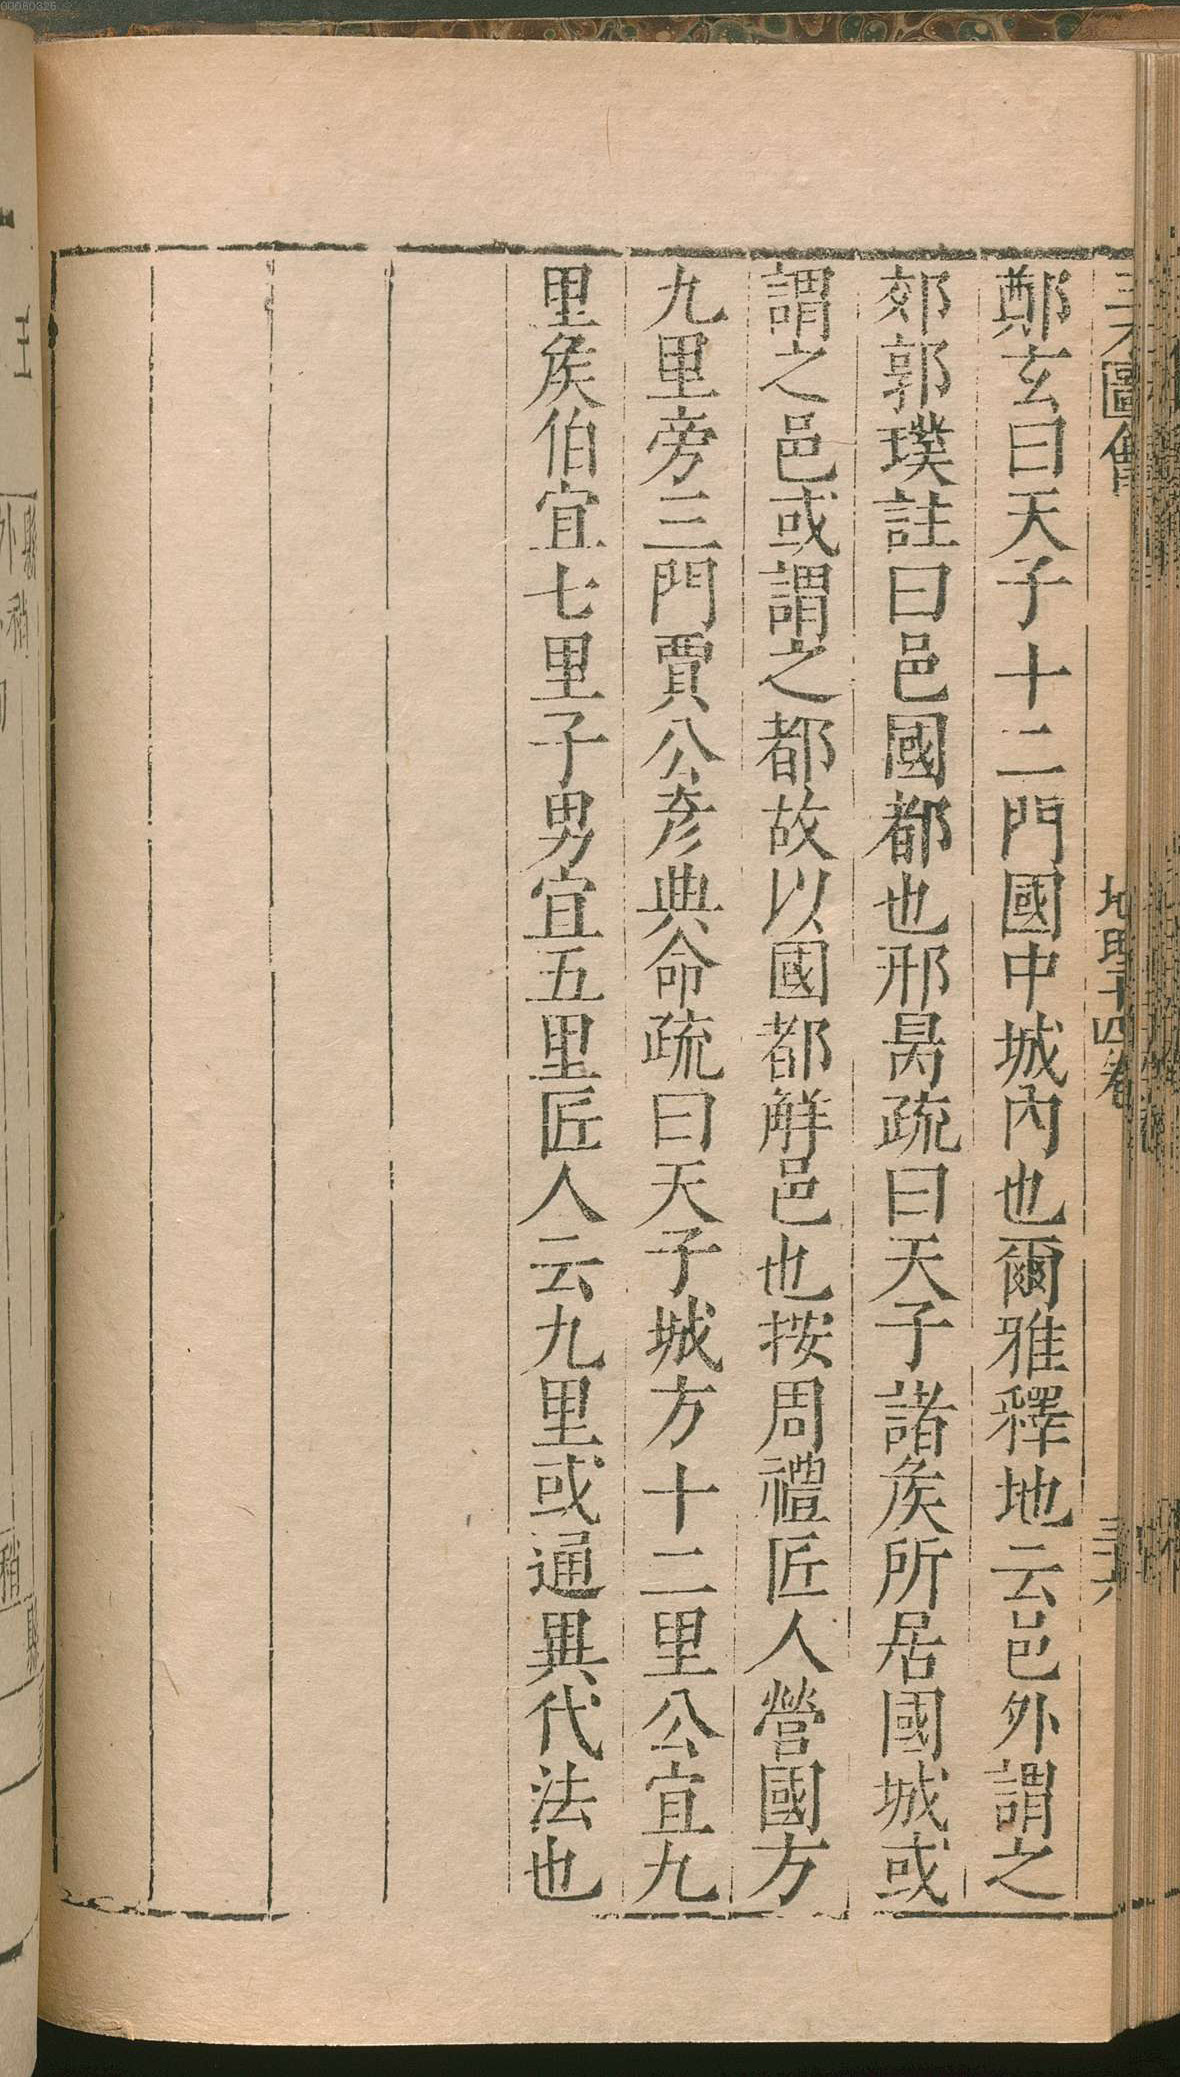 三才圖會 地理十四卷 三六
鄭玄曰天子十二門國中城內也爾雅釋地云邑外謂之
郊郭璞註曰邑國都也邢昺疏曰天子諸矦所居國城或
謂之邑或謂之都故以國都觧邑也按周禮匠人營國方
九里旁三門賈公彥典命疏曰天子城方十二里公宜九
里矦伯宜七里子男宜五里匠人云九里或通異代法也
00080326